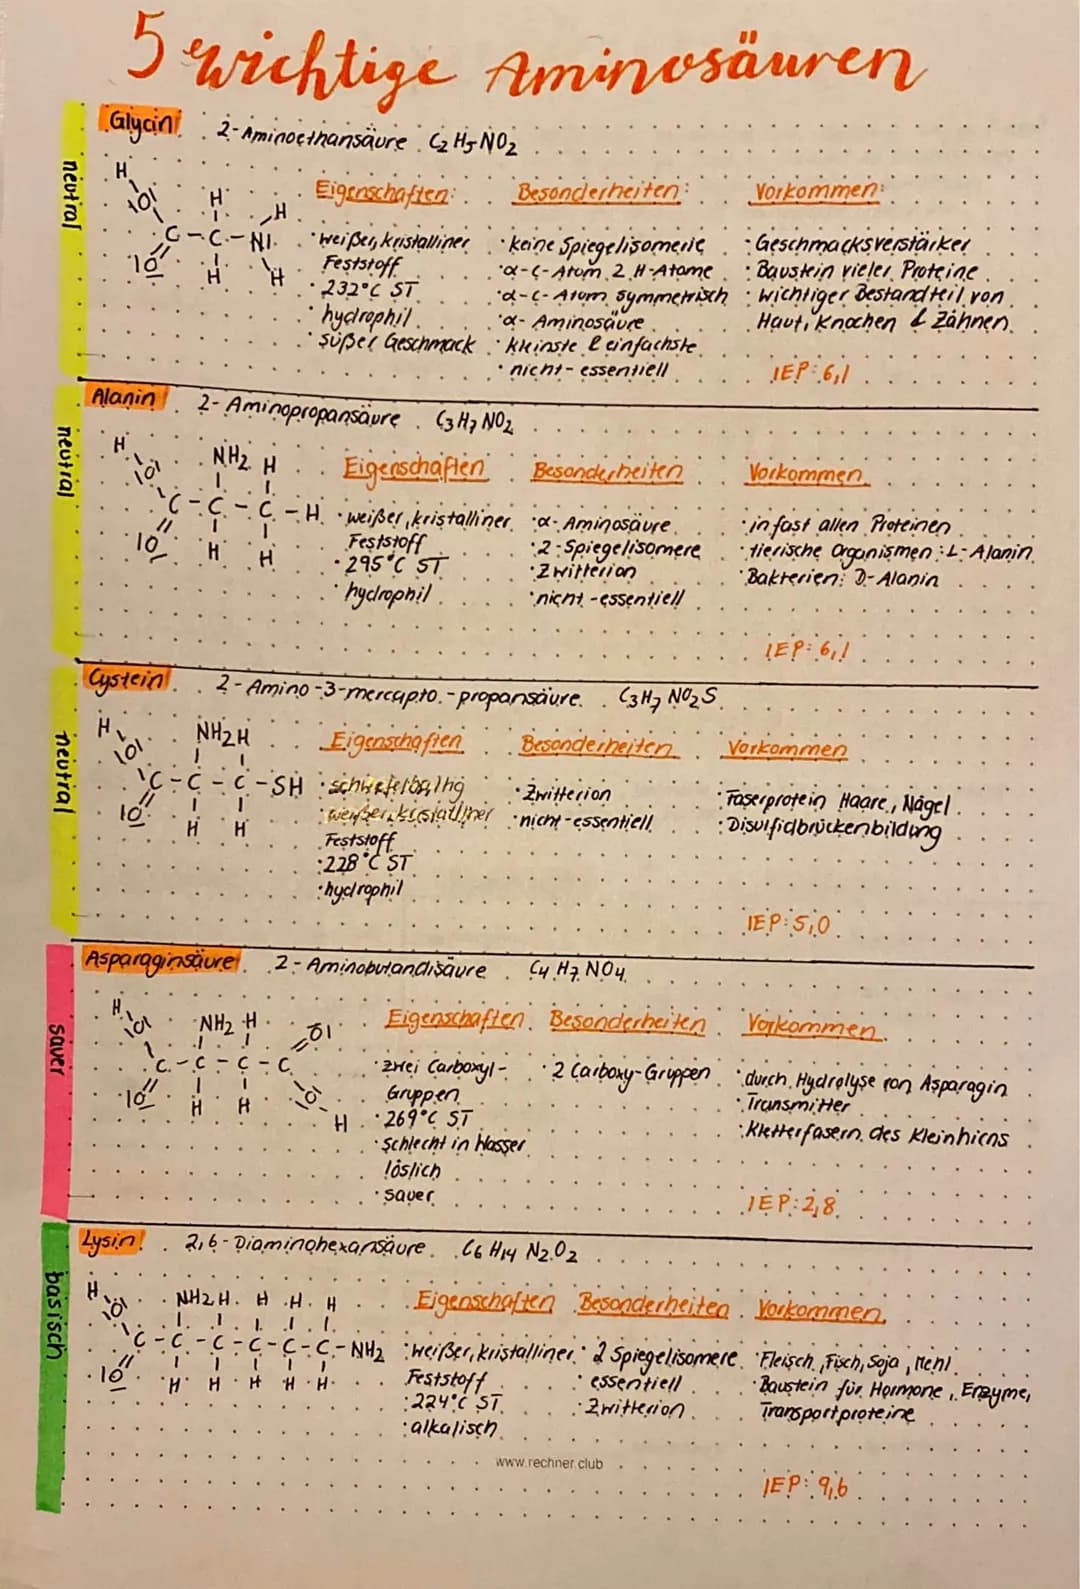 5 wichtige Aminosäuren
neutral
Glycin 2-Aminoethansäure C2H5NO2
Eigenschaften: Besonderheiten: Vorkommen:
· weißer, kristalliner · keine Spiegelisomerie · Geschmacksverstärker
Feststoff · α-C-Atom 2 H-Atome · Baustein vieler Proteine
· 232°C ST · α-C-Atom symmetrisch · wichtiger Bestandteil von
· hydrophil · α-Aminosäure Haut, Knochen & Zähnen
· süßer Geschmack · kleinste & einfachste
· nicht-essentiell IEP: 6,1
H
IOI H H
C-C-NI
IO H H
neutral
Alanin 2-Aminopropansäure C3H7NO2
Eigenschaften Besonderheiten Vorkommen
· weißer, kristalliner · α-Aminosäure · in fast allen Proteinen
Feststoff · 2-Spiegelisomere · tierische Organismen: L-Alanin
· 295°C ST · Zwitterion · Bakterien: D-Alanin
· hydrophil · nicht-essentiell
IEP: 6,1
H
IOI NH2 H
C-C-C-H
IO H H
neutral
Cystein 2-Amino-3-mercapto-propansäure C3H7NO2S
Eigenschaften Besonderheiten Vorkommen
· schwefelhaltig · Zwitterion · Faserprotein Haare, Nägel
weißer, kristalliner · nicht-essentiell · Disulfidbrückenbildung
Feststoff
· 228°C ST
· hydrophil
IEP: 5,0
H
IOI NH2 H
C-C-C-SH
IO H H
sauer
Asparaginsäure 2-Aminobutandisäure C4H7NO4
Eigenschaften Besonderheiten Vorkommen
· zwei Carboxyl- · 2 Carboxy-Gruppen · durch Hydrolyse von Asparagin
Gruppen · Transmitter
· 269°C ST · Kletterfasern des Kleinhirns
· schlecht in Wasser
löslich
· sauer IEP: 2,8
H
IOI NH2 H OI
C-C-C-C
IO H H IO
H
basisch
Lysin 2,6-Diaminohexansäure C6H14N2O2
Eigenschaften Besonderheiten Vorkommen
· weißer, kristalliner · 2 Spiegelisomere · Fleisch, Fisch, Soja, Mehl
Feststoff · essentiell · Baustein für Hormone, Enzyme,
· 224°C ST · Zwitterion Transportproteine
· alkalisch
IEP: 9,6
H
IOI NH2 H H H H
C-C-C-C-C-C-NH2
IO H H H H H
www.rechner.club